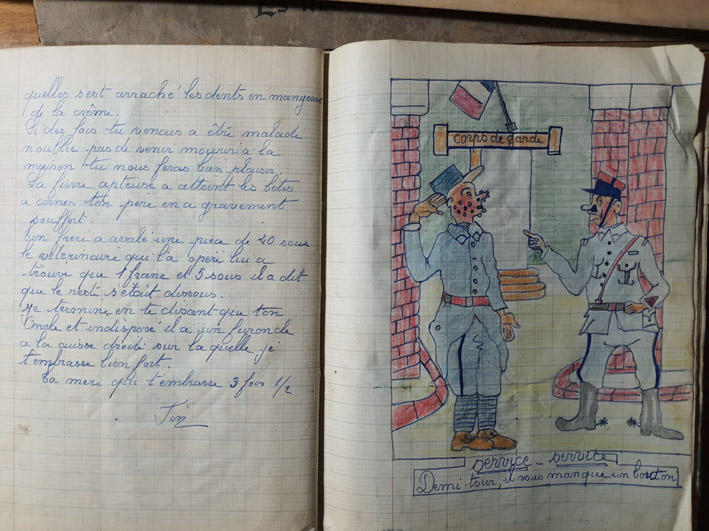 quelles s'est arraché les dents en mangeant
de la crême.
Si des fois tu venais a être malade
n'oublie pas de venir mourir a la
maison tu nous feras bien plaisir.
La fièvre apteuse a atteint les bêtes
a cornes ton père en a gravement
souffert.
Ton frere a avalé une pièce de 20 sous
le vétérinaire qui l'a opéré lui a
trouvé que 1 franc et 5 sous il a dit
que le reste s'était dissous.
Je termine en te disant que ton
Oncle et indisposé il a un furoncle
a la cuisse droite sur la quelle je
t'embrasse bien fort.
Ta mere qui t'embrasse 3 fois 1/2
Fin
corps de garde
service - service
Demi-tour, il vous manque un bouton